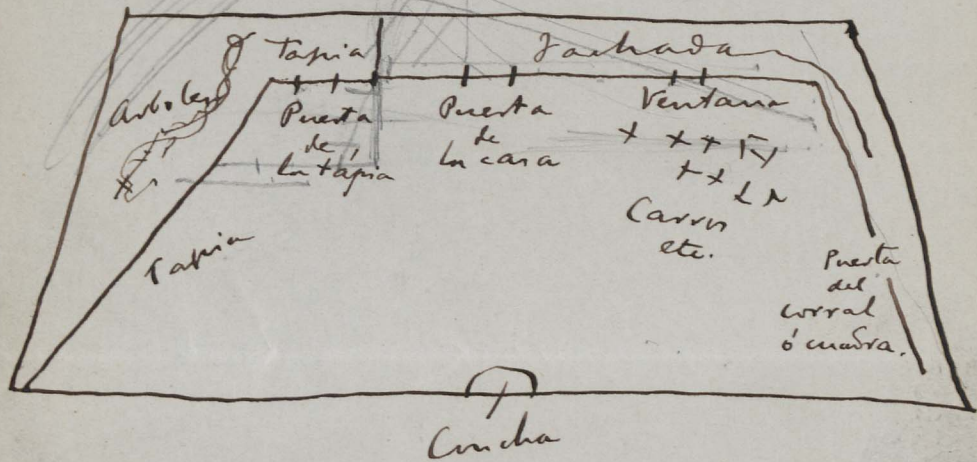 Tapia
Fachada
Arboles
Puerta
de
la tápia
Puerta
de
la casa
Ventana
Carros
etc.
Tapia
Puerta
del
corral
ó cuadra.
Concha